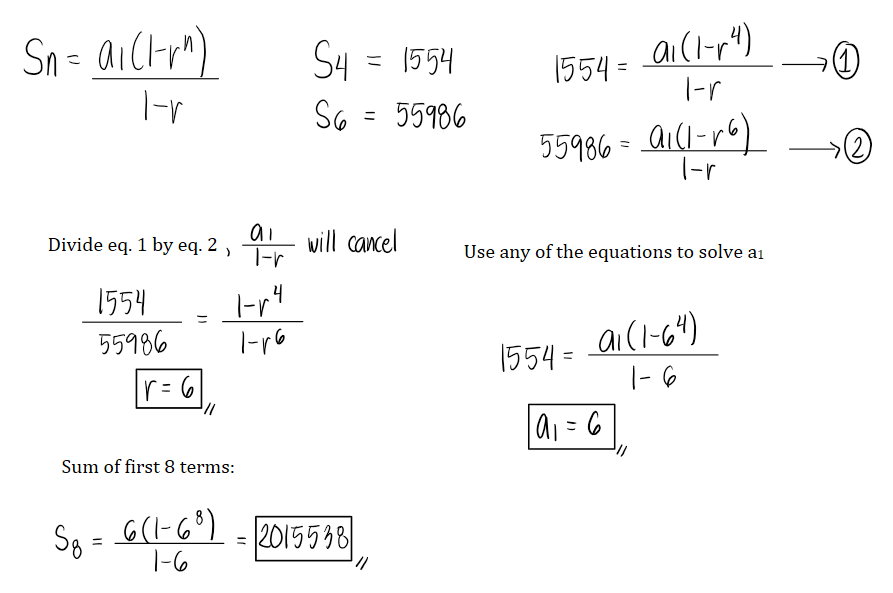 Sn = a₁(1-rⁿ) / 1-r
S₄ = 1554
S₆ = 55986
1554 = a₁(1-r⁴) / 1-r → ①
55986 = a₁(1-r⁶) / 1-r → ②
Divide eq. 1 by eq. 2 , a₁ / 1-r will cancel
1554 / 55986 = 1-r⁴ / 1-r⁶
r = 6 //
Use any of the equations to solve a₁
1554 = a₁(1-6⁴) / 1-6
a₁ = 6 //
Sum of first 8 terms:
S₈ = 6(1-6⁸) / 1-6 = 2015538 //